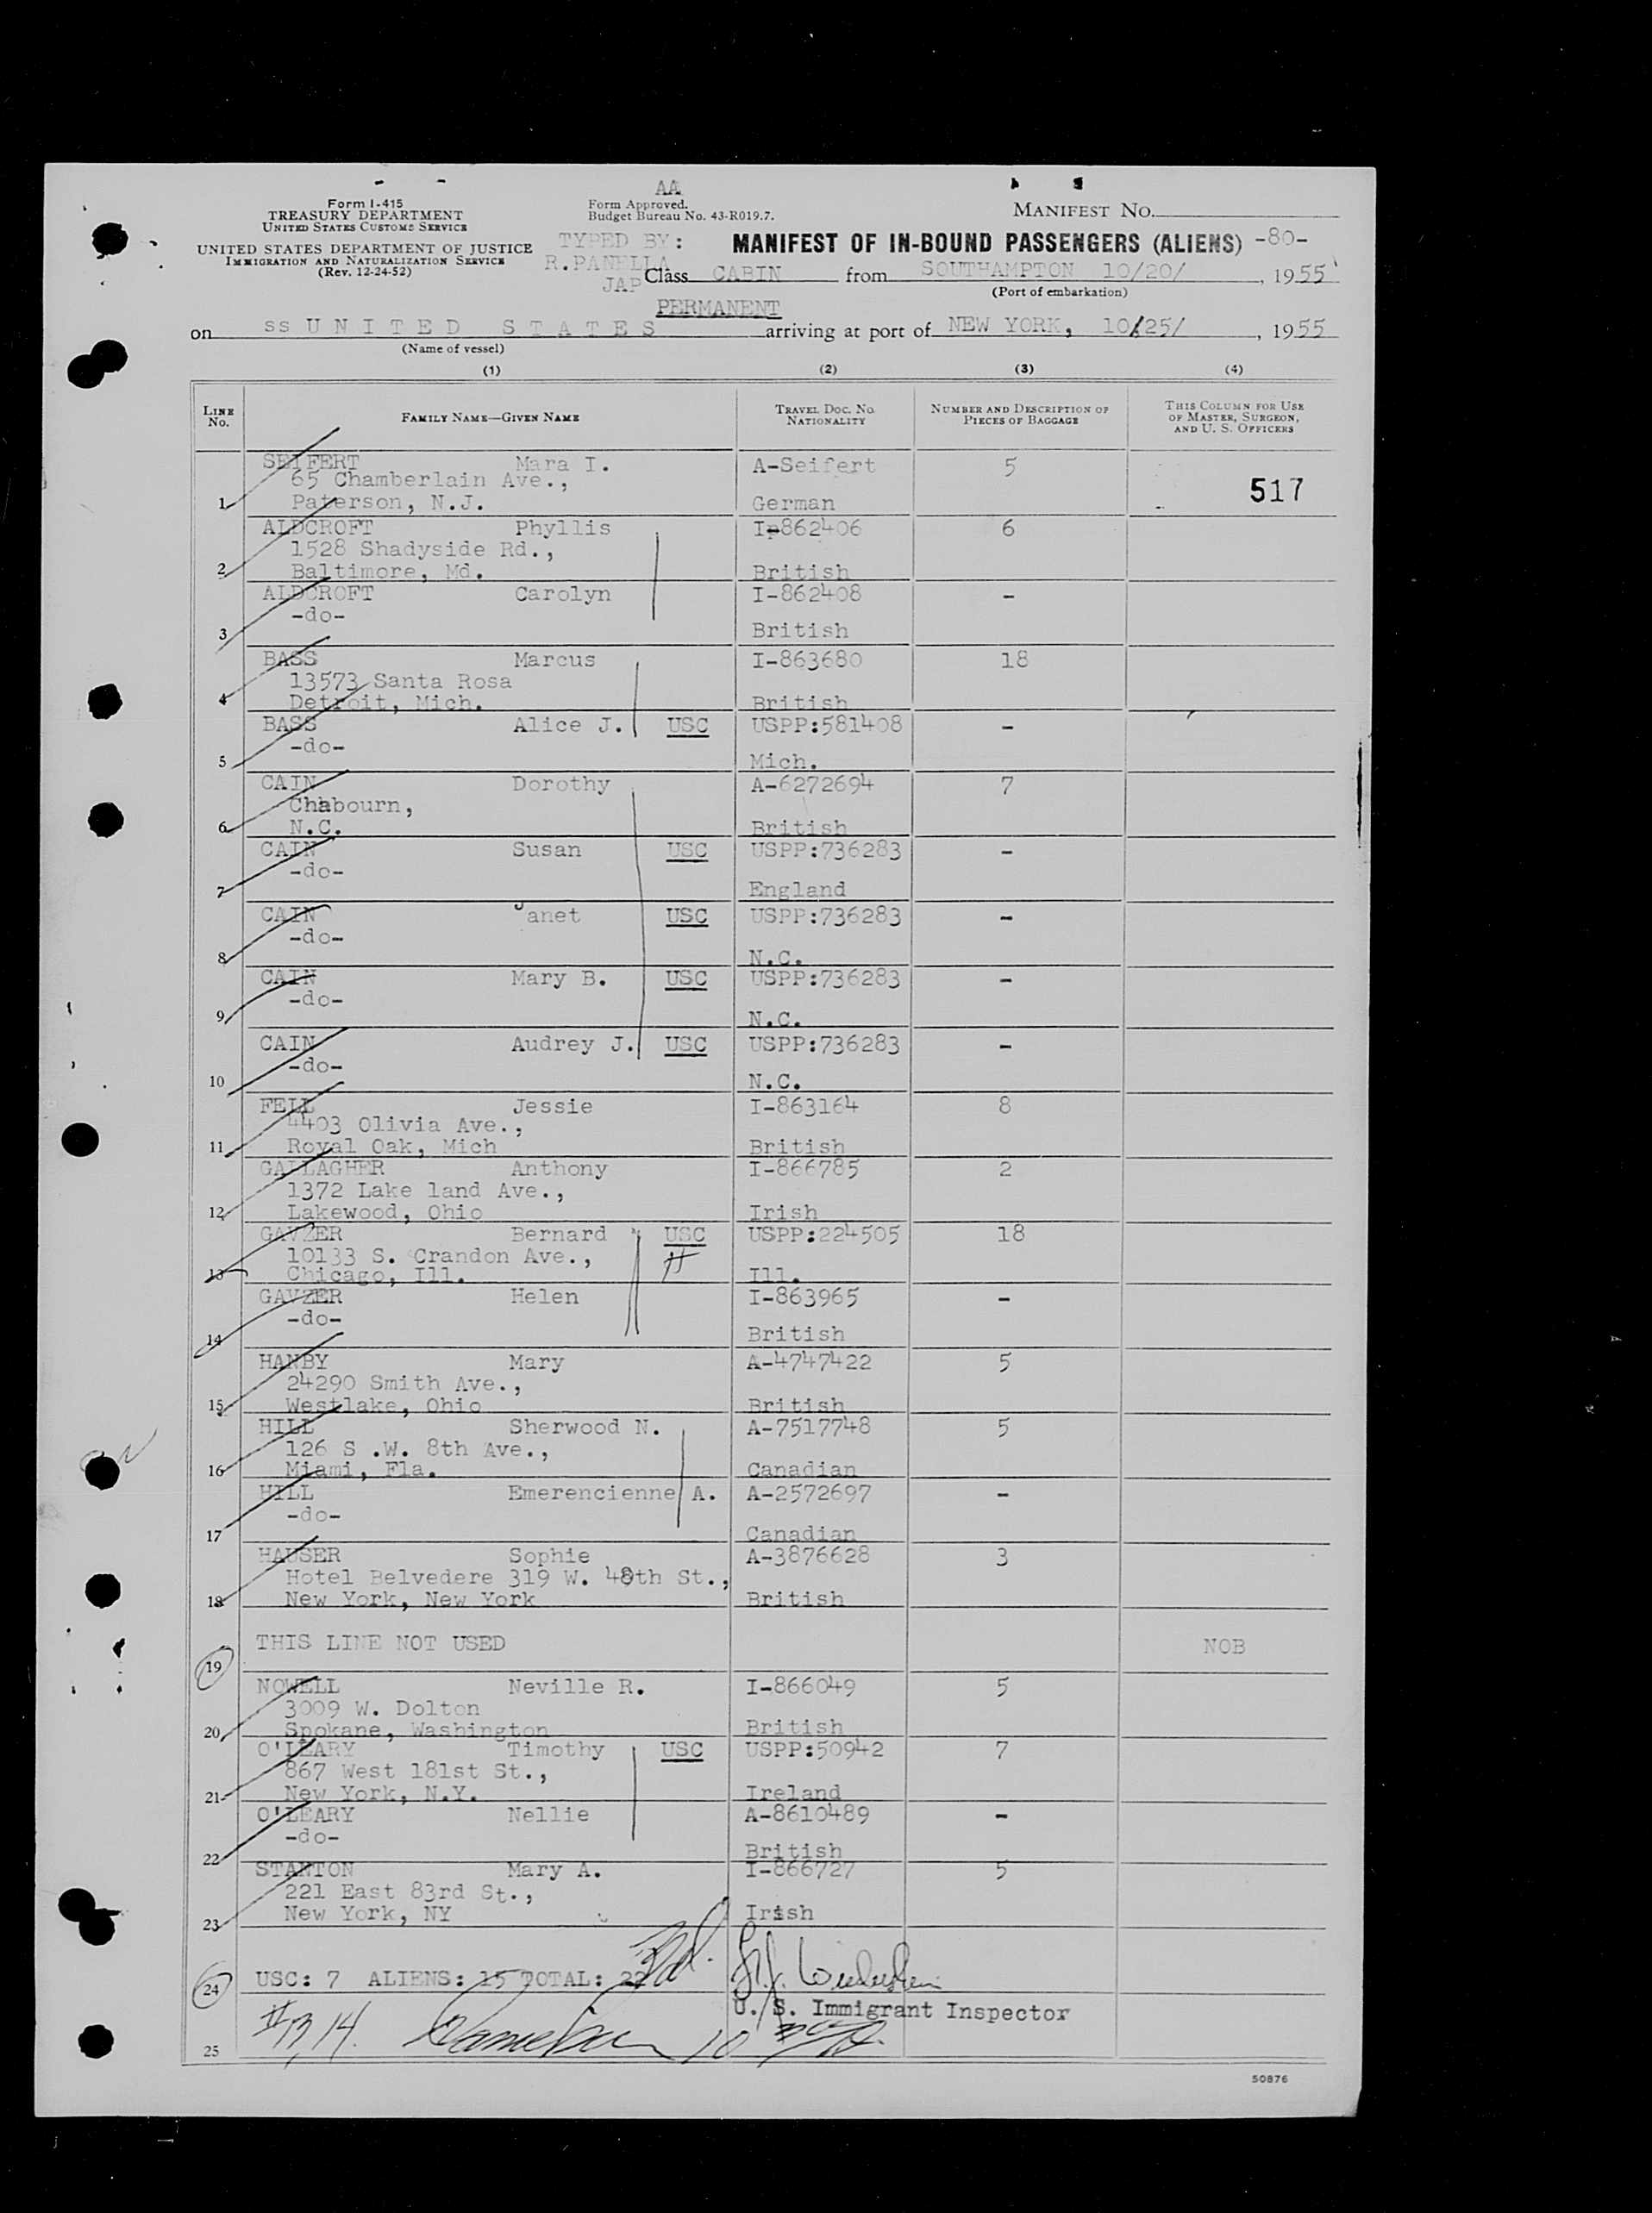 AA
Form I-415
TREASURY DEPARTMENT
UNITED STATES CUSTOMS SERVICE
UNITED STATES DEPARTMENT OF JUSTICE
IMMIGRATION AND NATURALIZATION SERVICE
(Rev. 12-24-52)
Form Approved.
Budget Bureau No. 43-R019.7.
MANIFEST NO.
TYPED BY:
R.PANELLA
JAP
MANIFEST OF IN-BOUND PASSENGERS (ALIENS) -80-
Class CABIN from SOUTHAMPTON 10/20/, 1955
(Port of embarkation)
PERMANENT
on ss U N I T E D S T A T E S arriving at port of NEW YORK, 10/25/, 1955
(Name of vessel)
(1) (2) (3) (4)
LINE NO. FAMILY NAME—GIVEN NAME TRAVEL DOC. NO. NATIONALITY NUMBER AND DESCRIPTION OF PIECES OF BAGGAGE THIS COLUMN FOR USE OF MASTER, SURGEON, AND U. S. OFFICERS
SEIFERT Mara I. A-Seifert 5
65 Chamberlain Ave.,
517
1 Paterson, N.J. German
ALDCROFT Phyllis I-862406 6
1528 Shadyside Rd.,
2 Baltimore, Md. British
ALDCROFT Carolyn I-862408 -
-do-
3 British
BASS Marcus I-863680 18
13573 Santa Rosa
4 Detroit, Mich. British
BASS Alice J. USC USPP:581408 -
-do-
5 Mich.
CAIN Dorothy A-6272694 7
Chabourn,
6 N.C. British
CAIN Susan USC USPP:736283 -
-do-
7 England
CAIN Janet USC USPP:736283 -
-do-
8 N.C.
CAIN Mary B. USC USPP:736283 -
-do-
9 N.C.
CAIN Audrey J. USC USPP:736283 -
-do-
10 N.C.
FELL Jessie I-863164 8
4403 Olivia Ave.,
11 Royal Oak, Mich British
GALLAGHER Anthony I-866785 2
1372 Lake land Ave.,
12 Lakewood, Ohio Irish
GAVZER Bernard USC USPP:224505 18
10133 S. Crandon Ave.,
13 Chicago, Ill. Ill.
GAVZER Helen I-863965 -
-do-
14 British
HANBY Mary A-4747422 5
24290 Smith Ave.,
15 Westlake, Ohio British
HILL Sherwood N. A-7517748 5
126 S .W. 8th Ave.,
16 Miami, Fla. Canadian
HILL Emerencienne A. A-2572697 -
-do-
17 Canadian
HAUSER Sophie A-3876628 3
Hotel Belvedere 319 W. 48th St.,
18 New York, New York British
THIS LINE NOT USED NOB
19
NOWELL Neville R. I-866049 5
3009 W. Dolton
20 Spokane, Washington British
O'LEARY Timothy USC USPP:50942 7
867 West 181st St.,
21 New York, N.Y. Ireland
O'LEARY Nellie A-8610489 -
-do-
22 British
STANTON Mary A. I-866727 5
221 East 83rd St.,
23 New York, NY Irish
24 USC: 7 ALIENS: 15 TOTAL: 22
U. S. Immigrant Inspector
#13,14.
25
50876